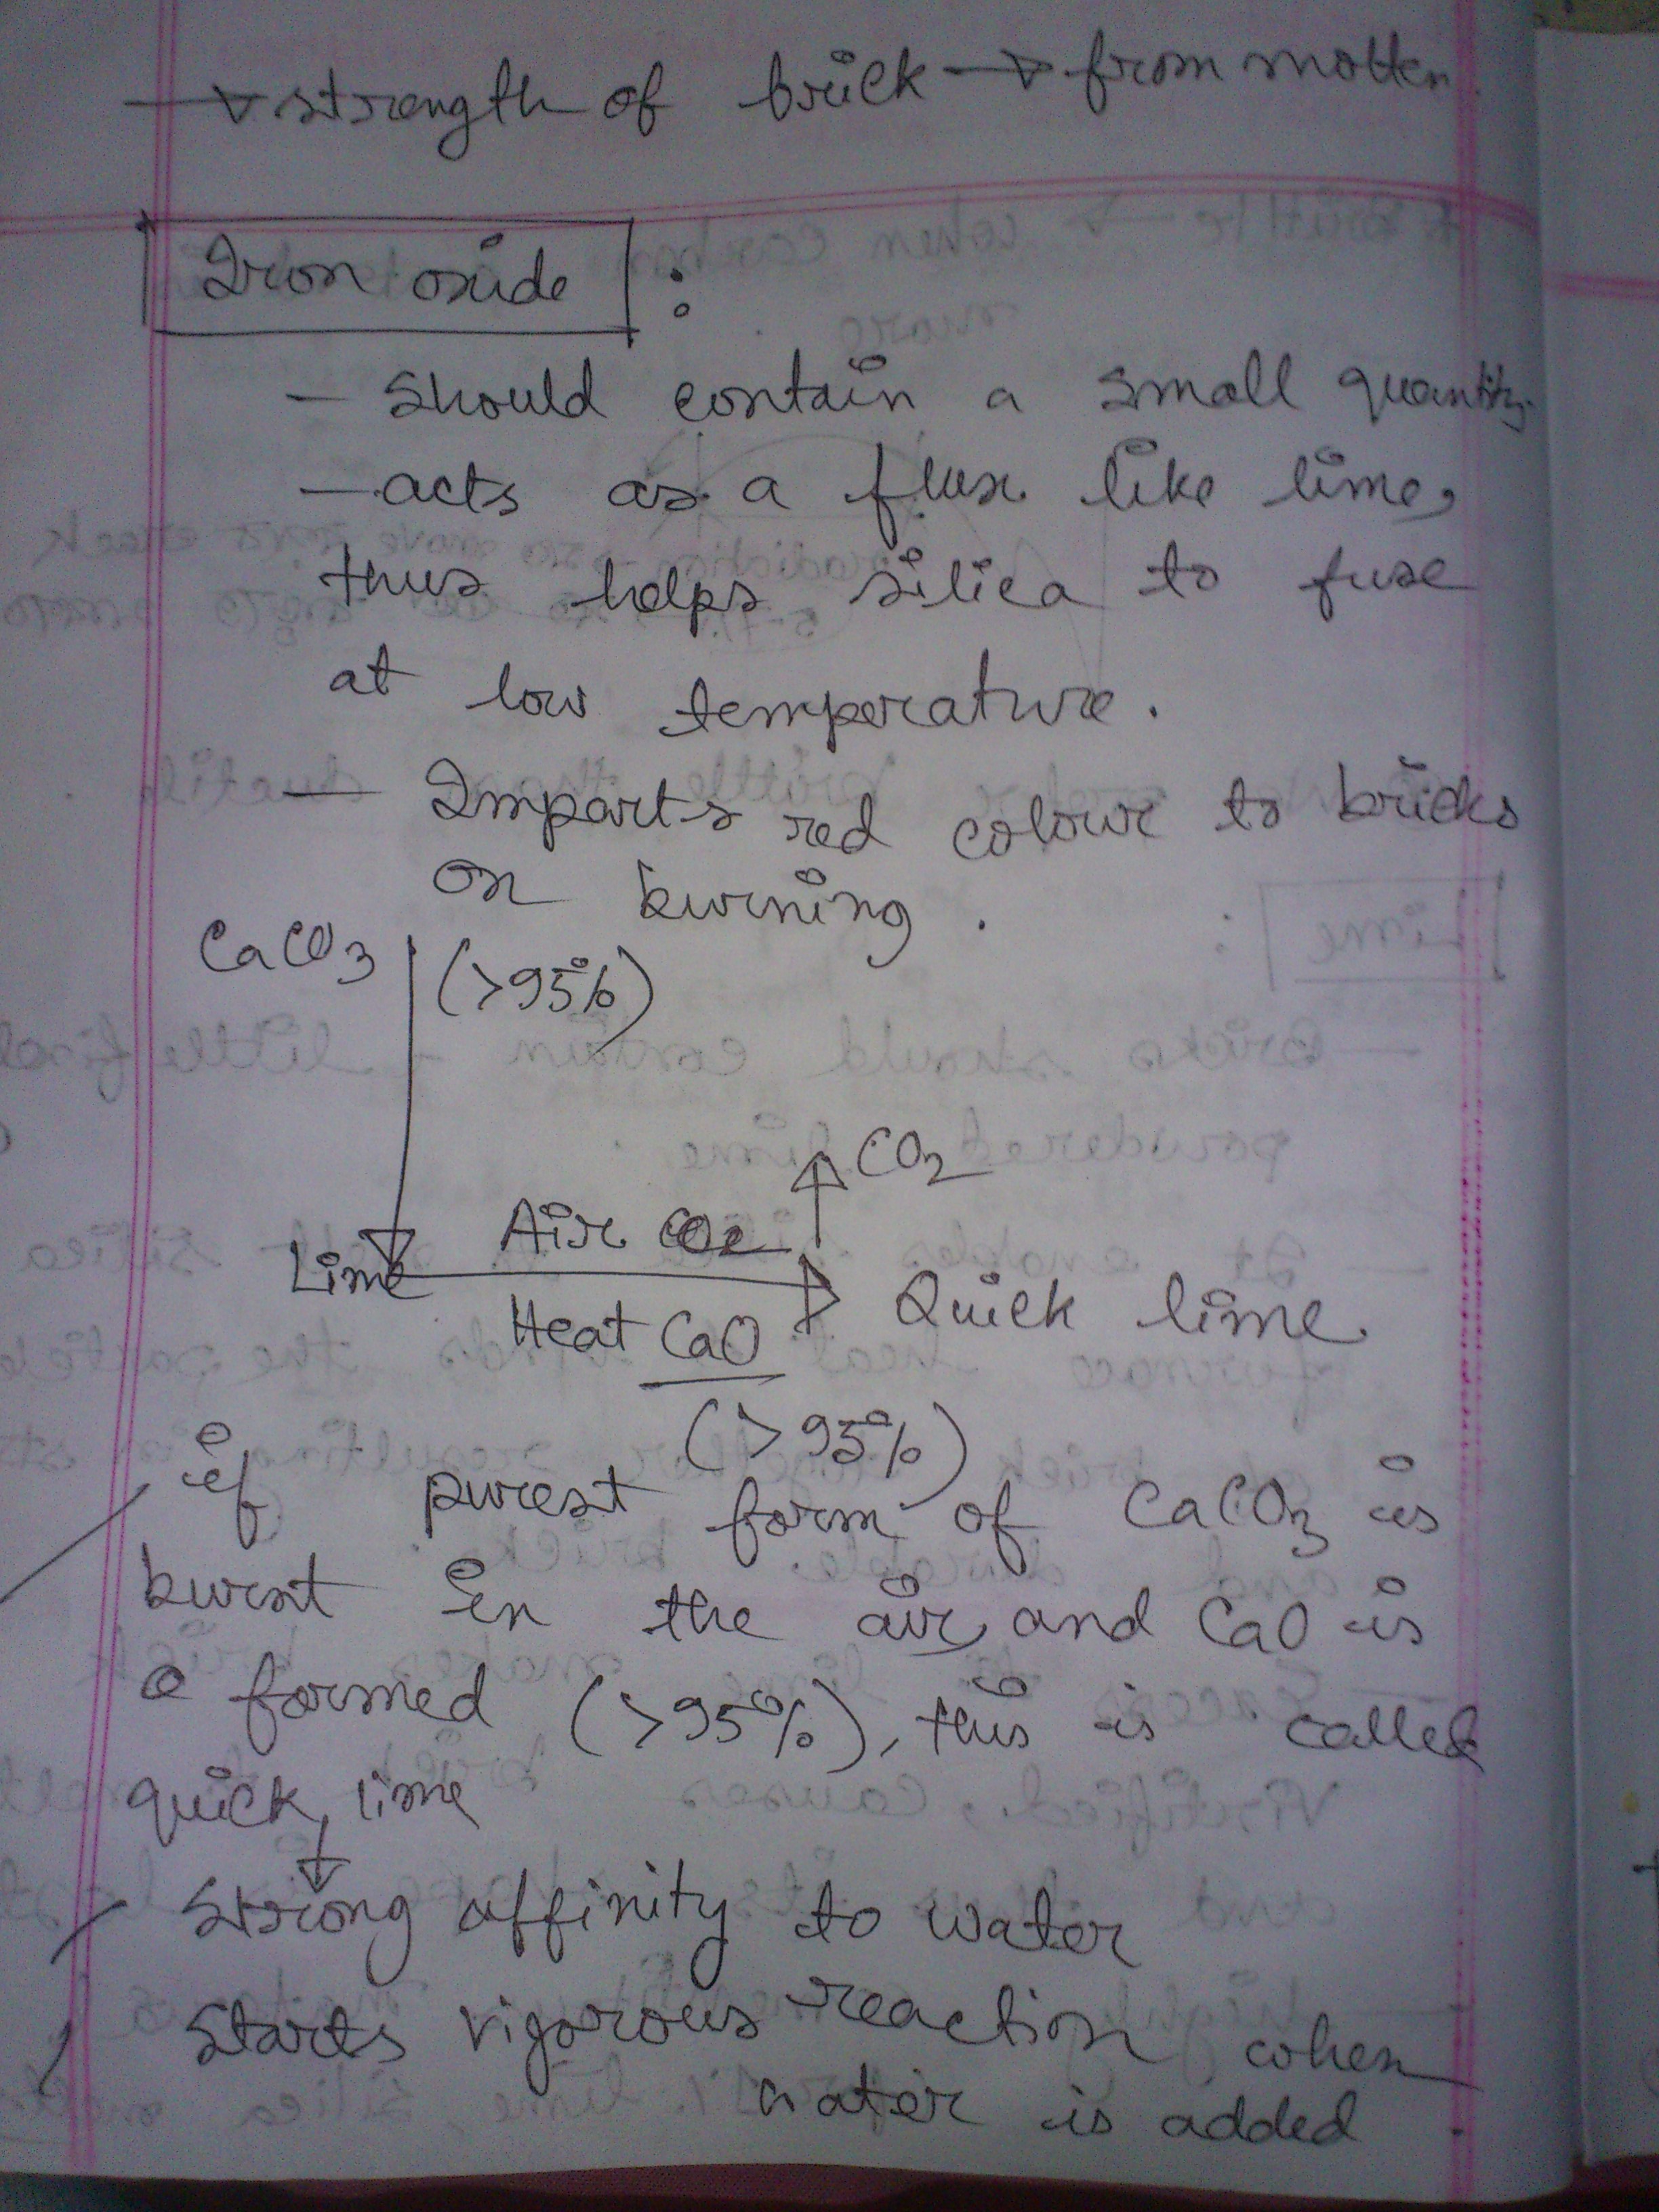 → strength of brick → from molten
Iron oxide :
- should contain a small quantity.
- acts as a flux like lime,
thus helps silica to fuse
at low temperature.
- Imparts red colour to bricks
on burning.
CaCO3 (>95%)
CO2
Air
Lime → Quick lime
Heat CaO
(>95%)
if purest form of CaCO3 is
burnt in the air, and CaO is
formed (>95%), this is called
quick lime
Strong affinity to water
Starts vigorous reaction when
water is added.